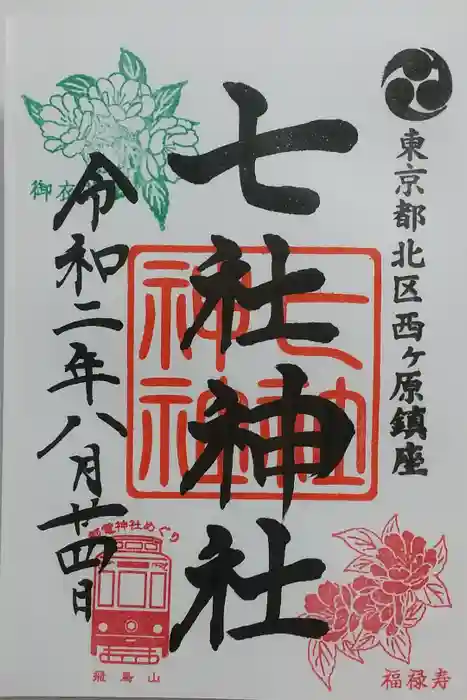 東京都北区西ヶ原鎮座
七社神社
七社神社
令和二年八月廿四日
都電神社めぐり
飛鳥山
福禄寿